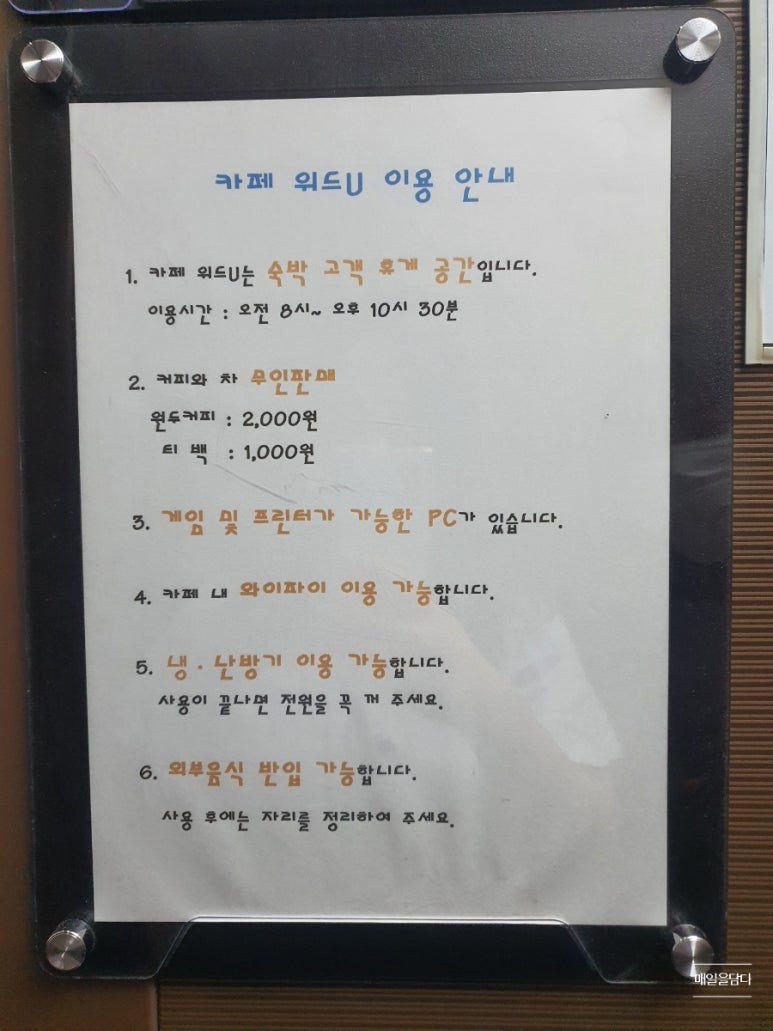 카페 위드U 이용 안내
1. 카페 위드U는 숙박 고객 휴게 공간입니다.
이용시간 : 오전 8시~ 오후 10시 30분
2. 커피와 차 무인판매
원두커피 : 2,000원
티 백 : 1,000원
3. 게임 및 프린터가 가능한 PC가 있습니다.
4. 카페 내 와이파이 이용 가능합니다.
5. 냉 · 난방기 이용 가능합니다.
사용이 끝나면 전원을 꼭 꺼 주세요.
6. 외부음식 반입 가능합니다.
사용 후에는 자리를 정리하여 주세요.
매일을담다